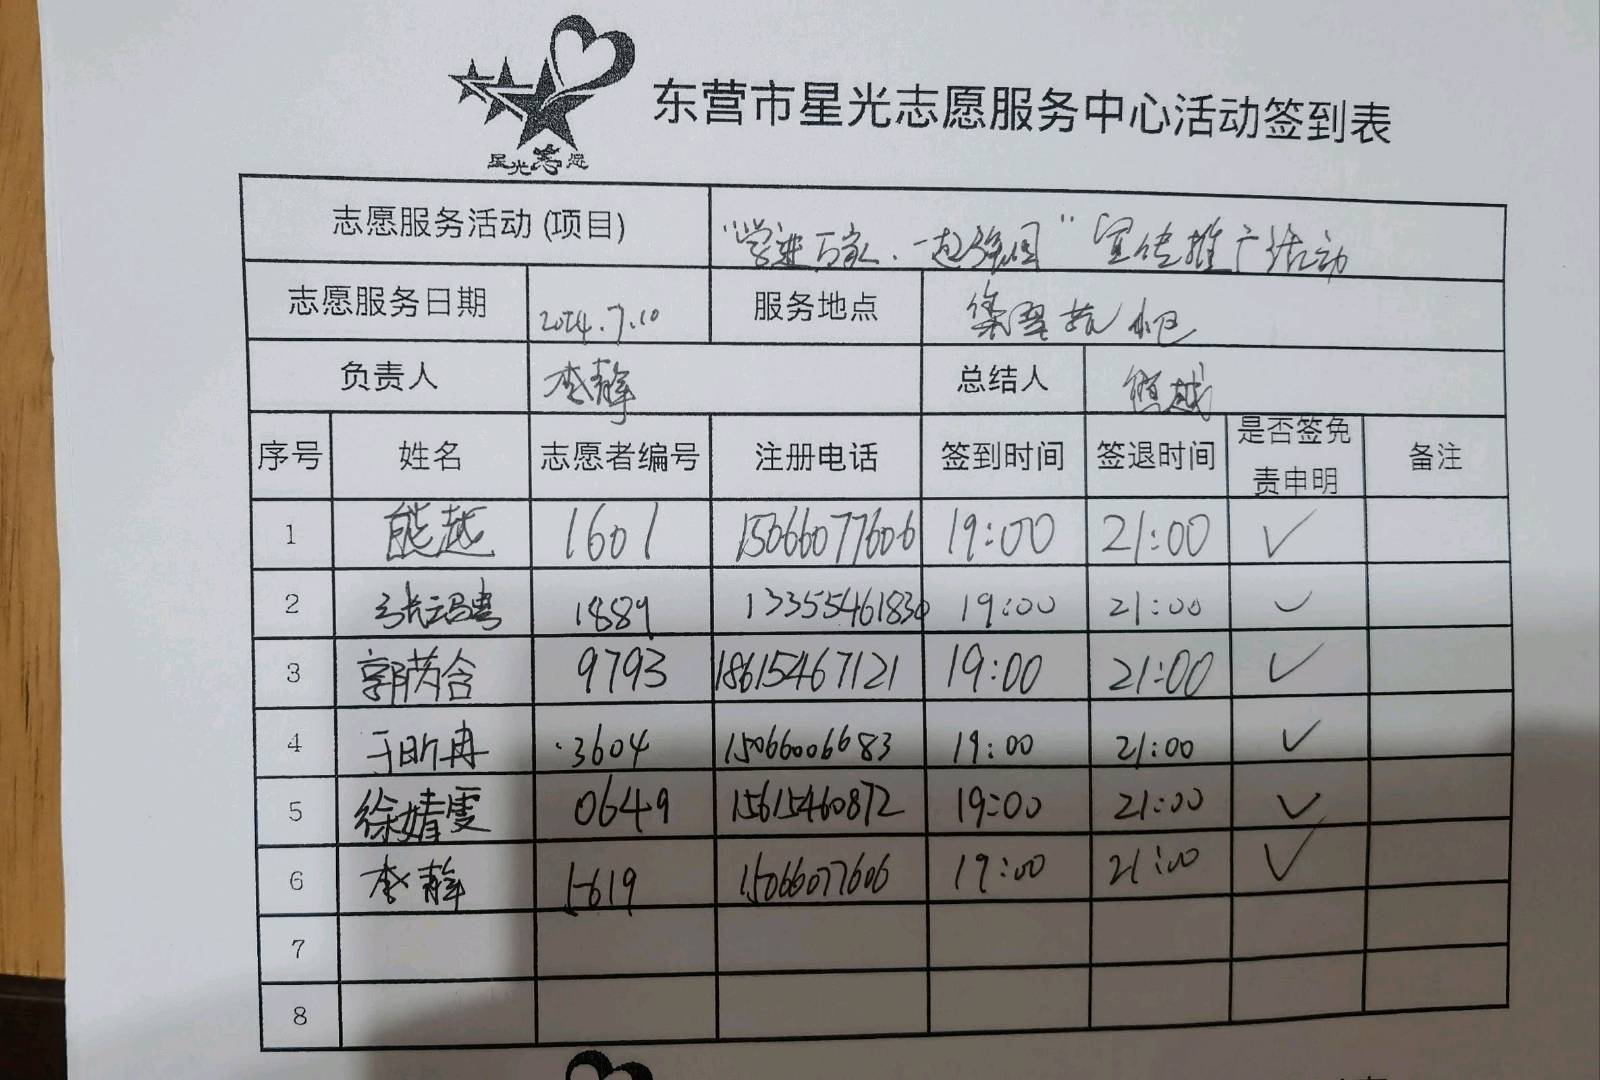 星光志愿
东营市星光志愿服务中心活动签到表
志愿服务活动(项目) “学进万家、一起强国”宣传推广活动
志愿服务日期 2024.7.10 服务地点
负责人 李静 总结人 熊越
序号 姓名 志愿者编号 注册电话 签到时间 签退时间 是否签免责申明 备注
1 熊越 1601 15066077606 19:00 21:00 ✓
2 1889 13355461830 19:00 21:00 ✓
3 郭芮含 9793 18615467121 19:00 21:00 ✓
4 于昕冉 3604 15066006683 19:00 21:00 ✓
5 徐婧雯 0649 15615460872 19:00 21:00 ✓
6 李静 1619 15066077606 19:00 21:00 ✓
7
8